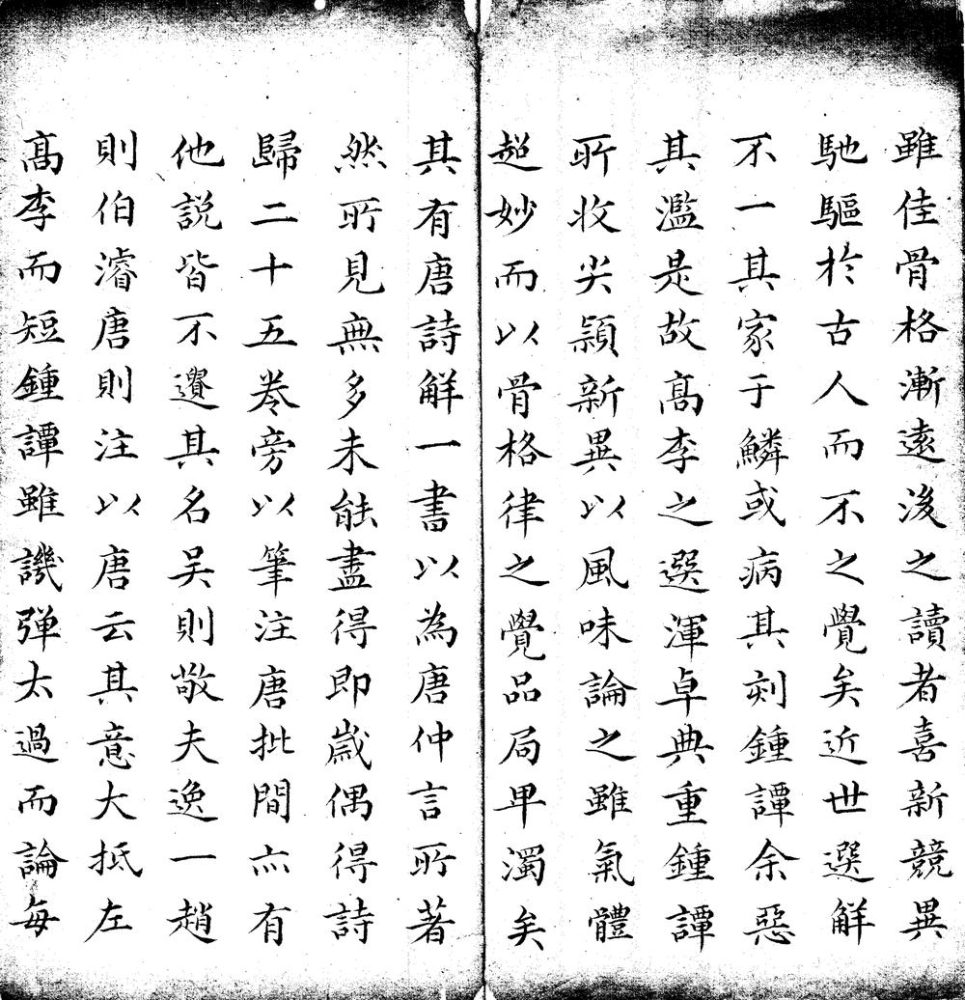 雖佳骨格漸遠後之讀者喜新競異
馳驅於古人而不之覺矣近世選解
不一其家于鱗或病其刻鍾譚余惡
其濫是故高李之選渾卓典重鍾譚
所收尖穎新異以風味論之雖氣體
超妙而以骨格律之覺品局卑濁矣
其有唐詩解一書以為唐仲言所著
然所見無多未能盡得即歲偶得詩
歸二十五卷旁以筆注唐批間亦有
他説皆不遺其名吴則敬夫逸一趙
則伯濬唐則注以唐云其意大抵左
高李而短鍾譚雖譏彈太過而論每